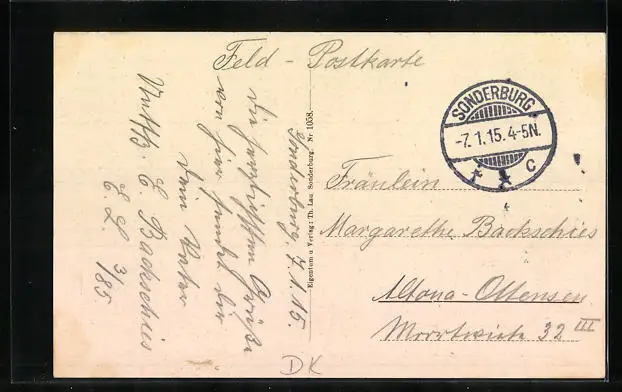 Feld - Postkarte
SONDERBURG
-7.1.15.4-5N.
* * c
Fräulein
Margarethe Backschies
Altona-Ottensen
32 III
Eigentum u Verlag: Th. Lau Sonderburg. Nr 1058.
Sonderburg, 7.1.15.
Die herzlichsten Grüße
von hier sendet dir
dein Vater
E. Backschies
E. L. 3/85
DK